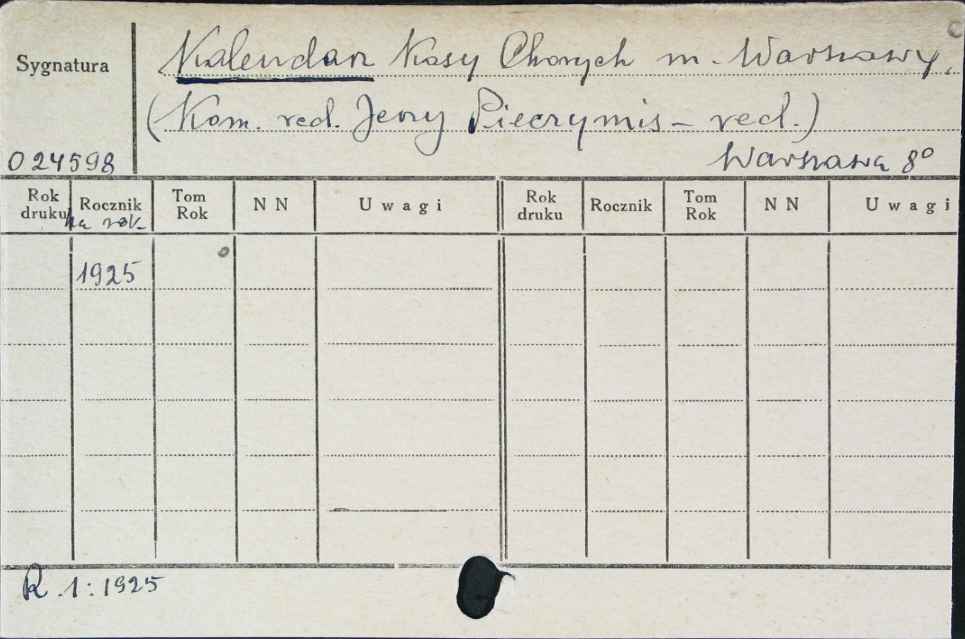 Sygnatura
Kalendarz Kasy Chorych m. Warszawy.
(Kom. red. Jerzy Pieczymis – red.)
024598
Warszawa 8°
Rok druku Rocznik na rok Tom Rok N N Uwagi Rok druku Rocznik Tom Rok N N Uwagi
1925
R. 1: 1925